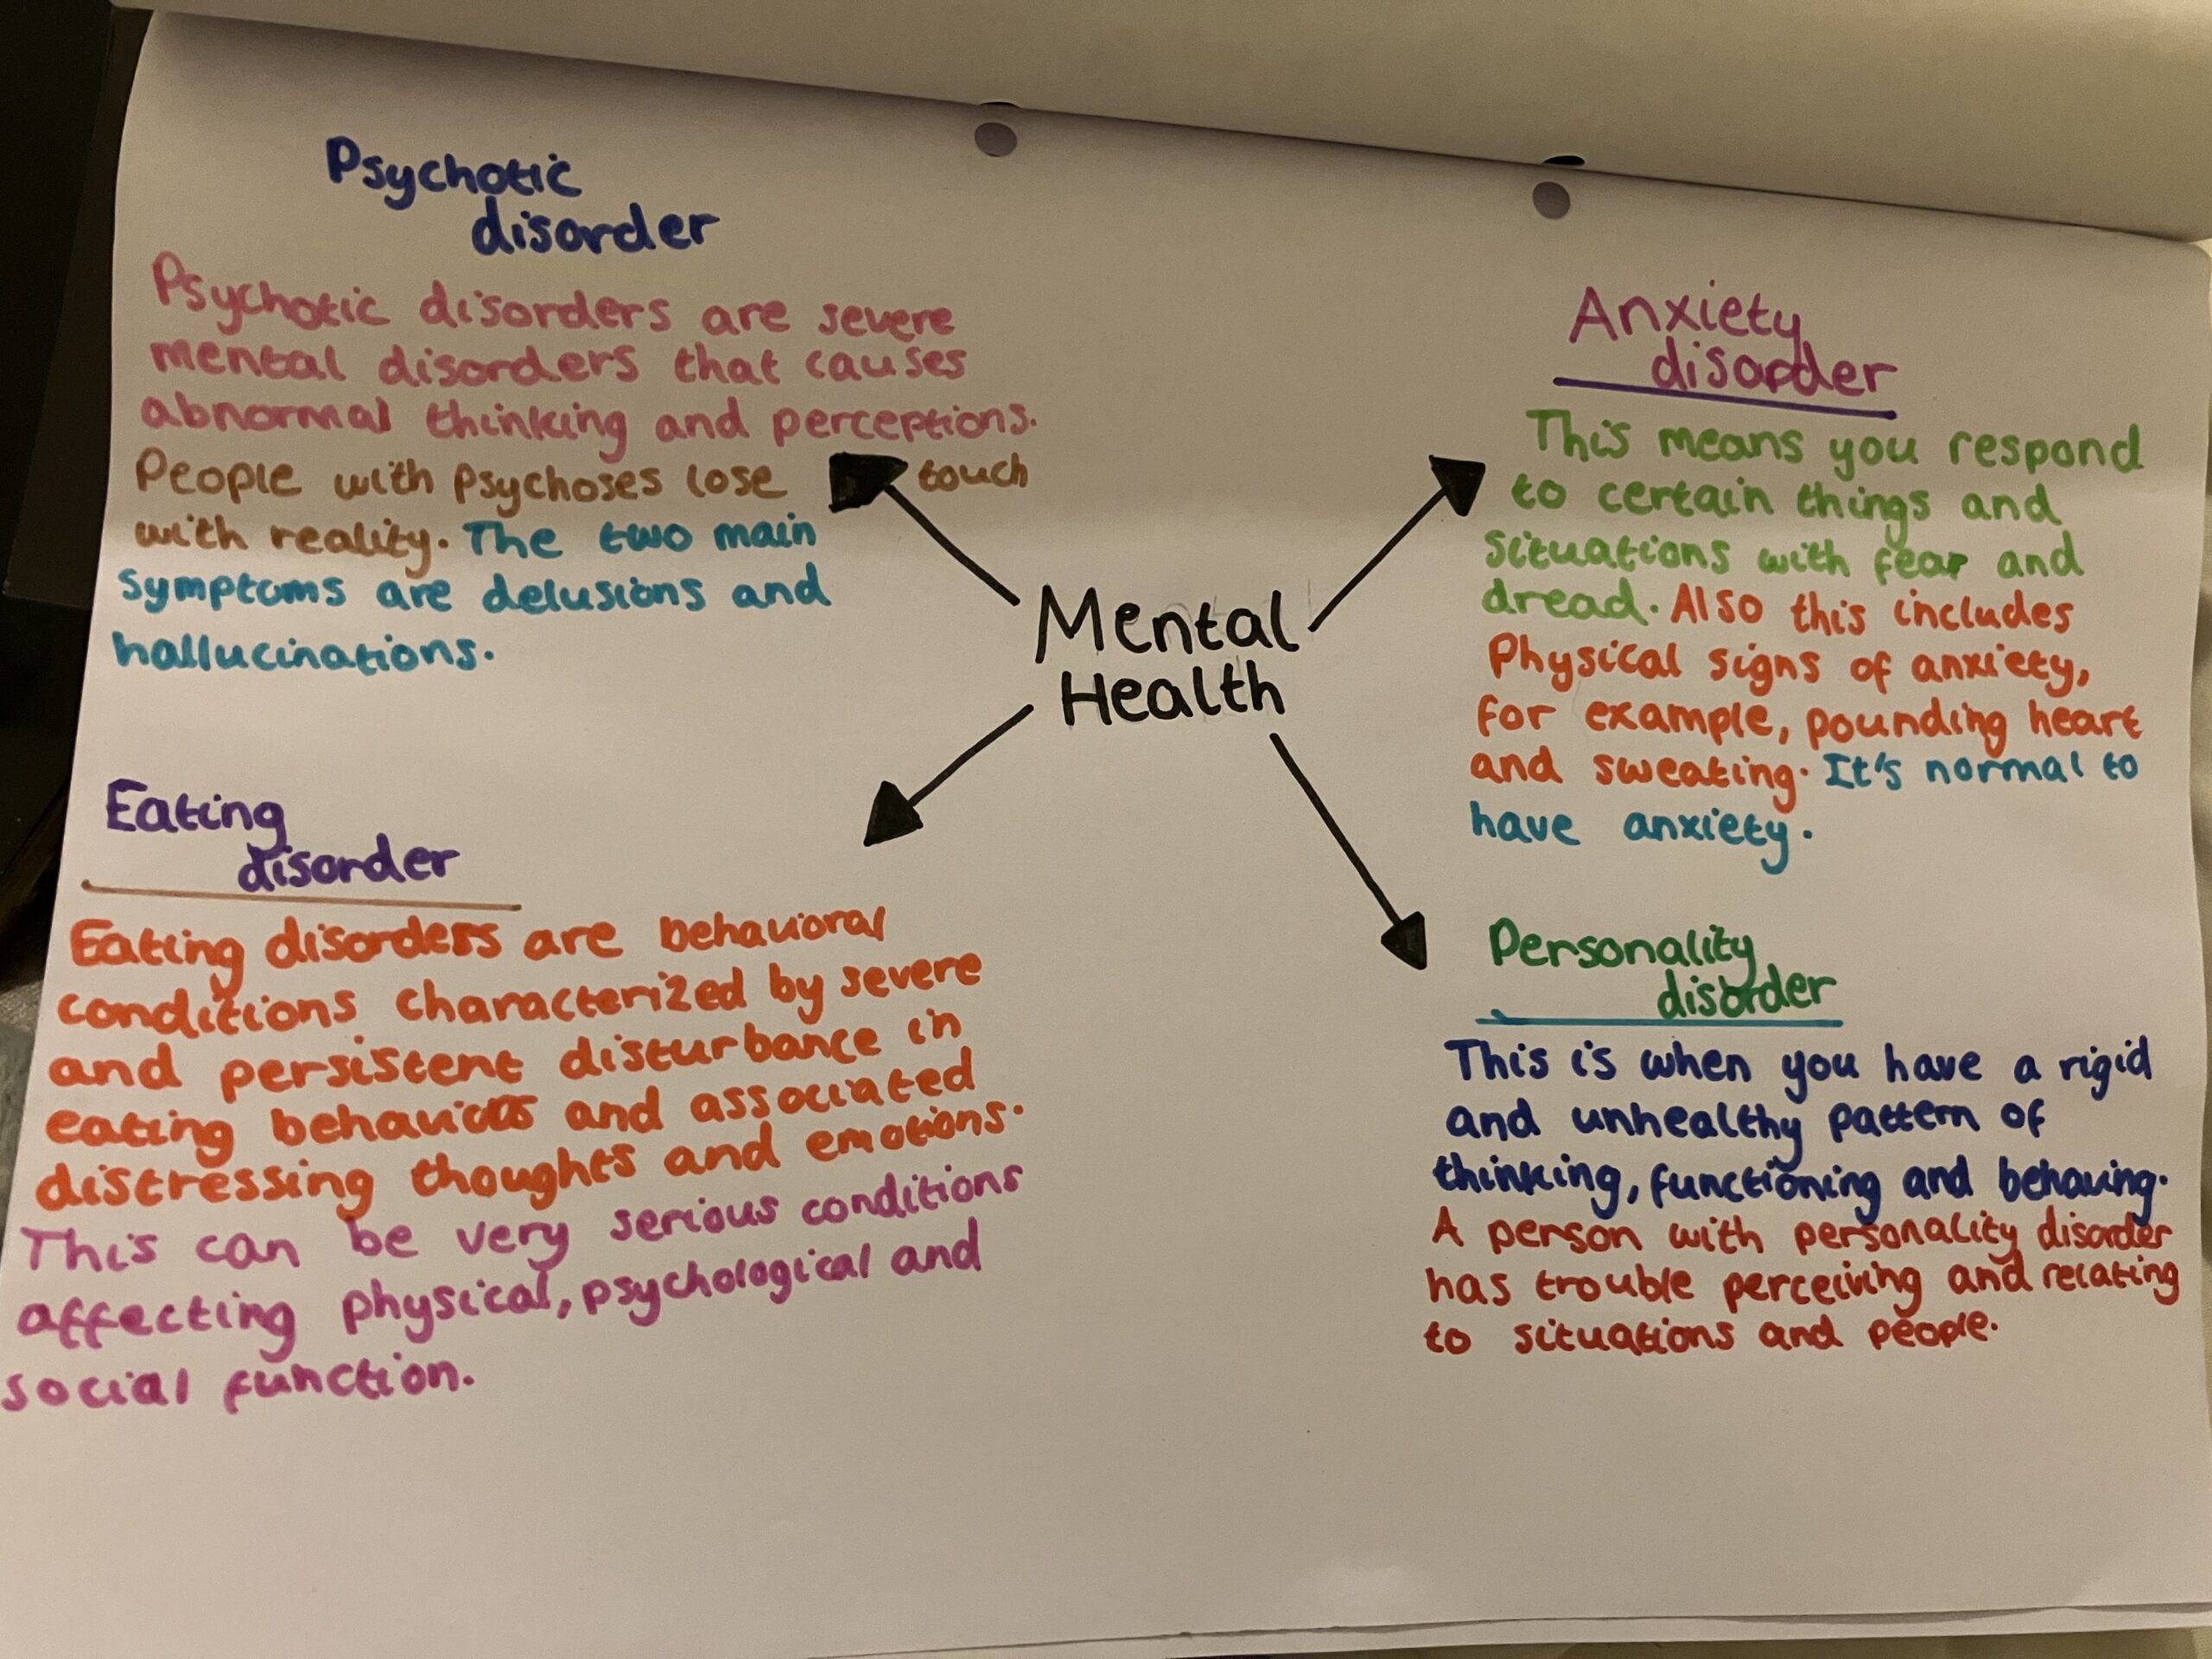 Psychotic
disorder
Psychotic disorders are severe
mental disorders that causes
abnormal thinking and perceptions.
People with psychoses lose touch
with reality. The two main
symptoms are delusions and
hallucinations.
Anxiety
disorder
This means you respond
to certain things and
situations with fear and
dread. Also this includes
Physical signs of anxiety,
for example, pounding heart
and sweating. It's normal to
have anxiety.
Mental
Health
Eating
disorder
Eating disorders are behavioral
conditions characterized by severe
and persistent disturbance in
eating behaviors and associated
distressing thoughts and emotions.
This can be very serious conditions
affecting physical, psychological and
social function.
Personality
disorder
This is when you have a rigid
and unhealthy pattern of
thinking, functioning and behaving.
A person with personality disorder
has trouble perceiving and relating
to situations and people.